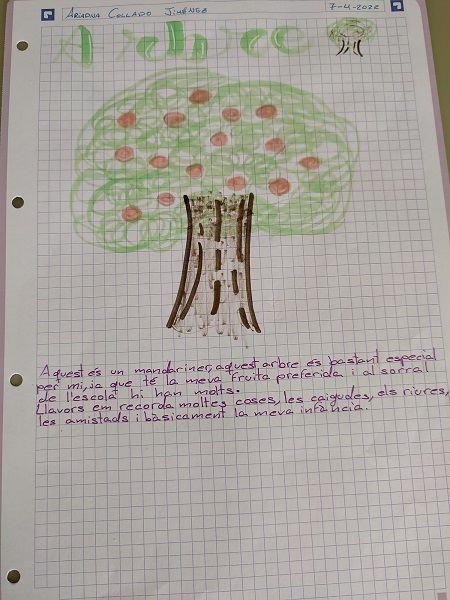 ARIADNA COLLADO JIMÉNEZ
7-4-2022
Aquest és un mandariner, aquest arbre és bastant especial
per mi, ja que té la meva fruita preferida i al sorral
de l'escola hi han molts.
Llavors em recorda moltes coses, les caigudes, els riures,
les amistads i bàsicament la meva infància.